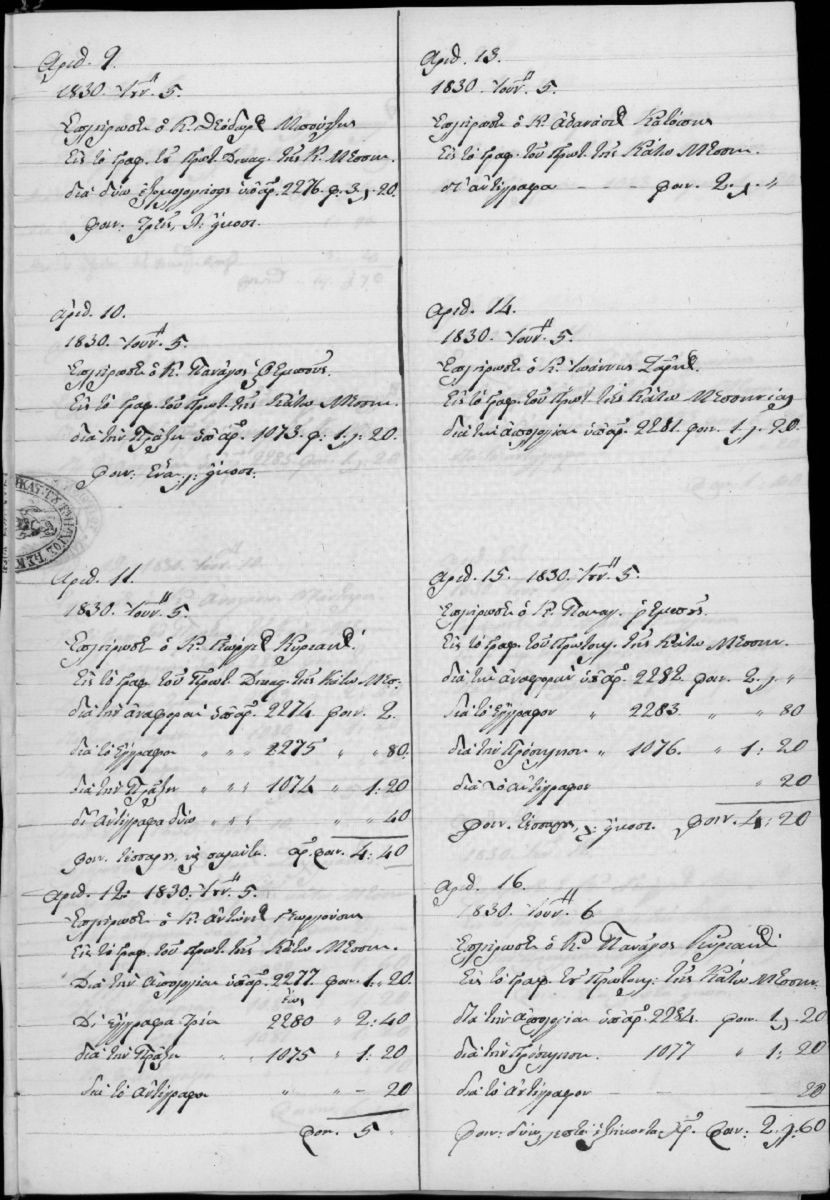 Αριθ. 9.
1830. Ιουν. 5.
Επλήρωσε ὁ Κ.
Εἰς τὸ Γραφ. τοῦ Πρωτ. Δικασ. τῆς Κ. Μεσση.
διὰ δύω ὑπ' ἀρ. 2276. φ. 3. λ. 20.
φοιν: τρεῖς, λ: εἴκοσι.
Αριθ. 10.
1830. Ἰουν. 5.
Επλήρωσε ὁ Κ. Πανάγος
Εἰς τὸ Γραφ. τοῦ Πρωτ. τῆς Κάτω Μεσση.
διὰ τὴν Πρᾶξιν ὑπ' ἀρ. 1073. φ: 1. λ. 20.
φοιν: ἕνα, λ: εἴκοσι.
Αριθ. 11.
1830. Ἰουν. 5.
Επλήρωσε ὁ Κ. Γεώργιος Κυριακοῦ
Εἰς τὸ Γραφ. τοῦ Πρωτ. Δικασ. τῆς Κάτω Μεσ:
διὰ τὴν ἀναφορὰν ὑπ' ἀρ. 2274. φοιν. 2.
διὰ τὸ ἔγγραφον " " 2275 " " 80.
διὰ τὴν Πρᾶξιν " " 1074 " 1:20
δι' ἀντίγραφα δύω " " " " 40
φοιν. τέσσαρες, λ. σαράντα. φοιν. 4:40
Αριθ. 12. 1830. Ιουν. 5.
Επλήρωσε ὁ Κ. Ἀντώνιος
Εἰς τὸ Γραφ. τοῦ Πρωτ. τῆς Κάτω Μεσση.
Διὰ τὴν ἀπολογίαν ὑπ' ἀρ. 2277 φοιν. 1:20.
ἕως
Δι' ἔγγραφα τρία 2280 " 2:40
διὰ τὴν Πρᾶξιν " 1075 " 1:20
διὰ τὸ ἀντίγραφον " " – 20
φοιν. 5
Αριθ. 13.
1830. Ἰουν. 5.
Επλήρωσε ὁ Κ. Ἀθανάσιος
Εἰς τὸ Γραφ. τοῦ Πρωτ. τῆς Κάτω Μεσση.
ἀντίγραφα – – – φοιν. 2. λ. "
Αριθ. 14.
1830. Ἰουν. 5.
Επλήρωσε ὁ Κ. Ἰωάννης
Εἰς τὸ Γραφ. τοῦ Πρωτ. τῆς Κάτω Μεσσηνίας
διὰ τὴν ἀπολογίαν ὑπ' ἀρ. 2281. φοιν. 1. λ. 20.
Αριθ. 15. 1830. Ιουν. 5.
Επλήρωσε ὁ Κ. Παναγ.
Εἰς τὸ Γραφ. τοῦ Πρωτοκ. τῆς Κάτω Μεσση.
διὰ τὴν ἀναφορὰν ὑπ' ἀρ. 2282. φοιν. 2. λ. "
διὰ τὸ ἔγγραφον " 2283. " " 80
διὰ τὴν " 1076. " 1:20
διὰ τὸ ἀντίγραφον " 20
φοιν. τέσσαρες, λ: εἴκοσι. φοιν. 4:20
Αριθ. 16.
1830. Ἰουν. 6.
Επλήρωσε ὁ Κ. Πανάγος Κυριακοῦ
Εἰς τὸ Γραφ. τοῦ Πρωτοκ. τῆς Κάτω Μεσση.
διὰ τὴν ἀπολογίαν ὑπ' ἀρ. 2284. φοιν. 1. λ. 20
διὰ τὴν 1077 " 1:20
διὰ τὸ ἀντίγραφον – – 20
φοιν: δύω, λεπτὰ ἑξήκοντα φοιν: 2. λ. 60